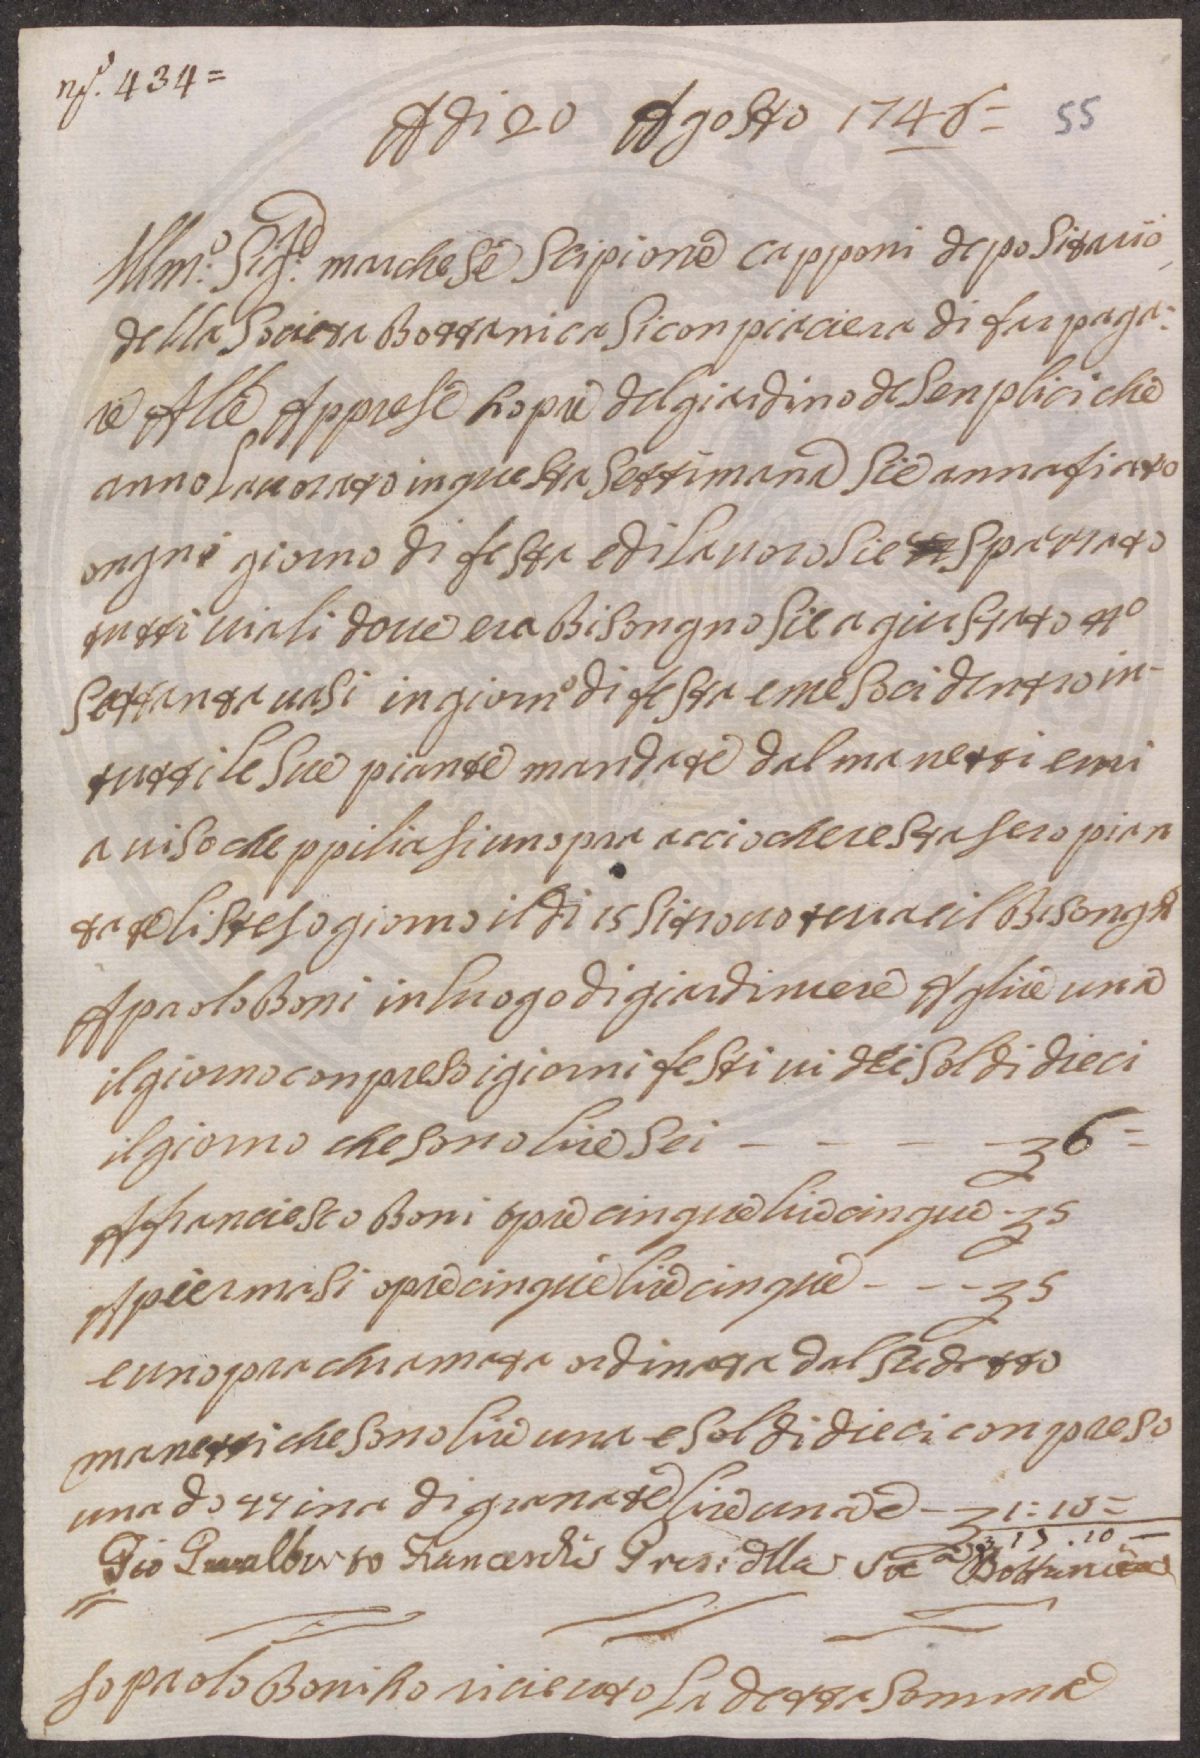 n.º 434=
Adi 20 Agosto 1746= 55
Illm.º Sig.re marchese Scipione Capponi depositario
della Società Bottanica Si conpiaciera di far paga=
re Alle Appresse hopre del giardino de Senplici che
anno Lauorato in questa Settimana Sie annafiato
ongni giorno di festa e di Lauoro Sie spazzato
tutti uiali doue era Bisongno Sie agiustato nº
Settanta uasi in giorno di festa e mesoci dentro in-
tutti le Sue piante mandate dal manetti e mi
auiso che ppiliasi unopra accio che restasero pian
tate listeso giorno il di 15 si trouo
A paolo Boni in luogo di giardiniere A lire una
il giorno conpreso i giorni festiui dei Soldi dieci
il giorno che Sono lire Sei - - - - 6=
A franciesco Boni opre cinque lire cinque - 5
A pier masi opre cinque lire cinque - - - 5
e unopra chiamata ordinata dal Sudetto
manetti che Sono lire una e Soldi dieci conpreso
una dozzina di granate lire una e - 1:10=
17.10 —
Gio Gualberto Franceschi Pres: della Soc.a Bottanica
Io paolo Boni ho riceuto La detta Somma